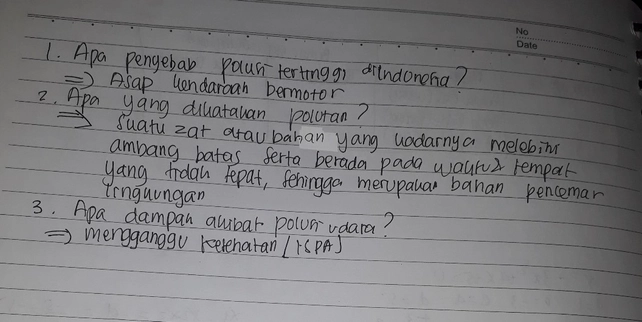 No
Date
1. Apa penyebab polusi tertinggi diIndonesia?
=> Asap kendaraan bermotor
2. Apa yang dikatakan polutan?
=> Suatu zat atau bahan yang kadarnya melebihi
ambang batas serta berada pada waktu & tempat
yang tidak tepat, sehingga merupakan bahan pencemar
lingkungan
3. Apa dampak akibat polusi udara?
=> mengganggu kesehatan [ISPA]